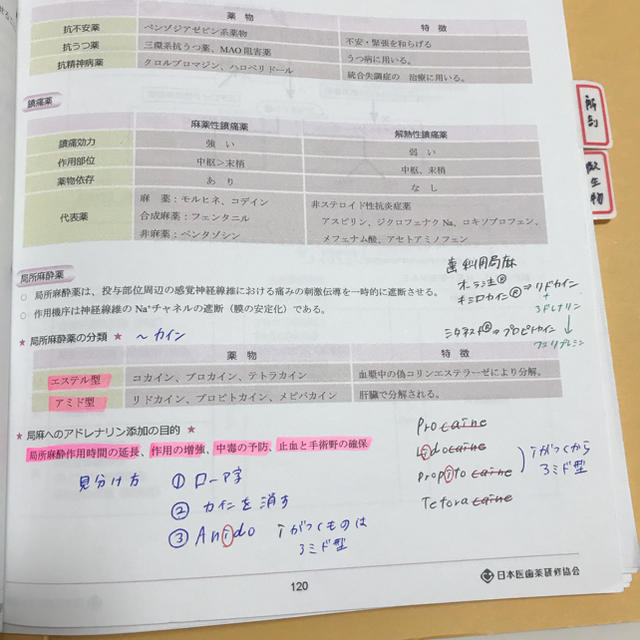 薬物 特徴
抗不安薬 ベンゾジアゼピン系薬物 不安・緊張を和らげる
抗うつ薬 三環系抗うつ薬、MAO阻害薬 うつ病に用いる。
抗精神病薬 クロルプロマジン、ハロペリドール 統合失調症の 治療に用いる。
鎮痛薬
麻薬性鎮痛薬 解熱性鎮痛薬
鎮痛効力 強い 弱い
作用部位 中枢>末梢 中枢、末梢
薬物依存 あり なし
代表薬
麻 薬:モルヒネ、コデイン 非ステロイド性抗炎症薬
合成麻薬:フェンタニル アスピリン、ジクロフェナクNa、ロキソプロフェン、
非麻薬:ペンタゾシン メフェナム酸、アセトアミノフェン
局所麻酔薬
○ 局所麻酔薬は、投与部位周辺の感覚神経線維における痛みの刺激伝導を一時的に遮断させる。
○ 作用機序は神経線維のNa⁺チャネルの遮断(膜の安定化)である。
歯科用局麻
オーラ注Ⓡ
キシロカインⓇ ⇒ リドカイン
+
アドレナリン
シタネストⓇ ⇒ プロピトカイン
↓
フェリプレシン
★ 局所麻酔薬の分類 ★ ~カイン
薬物 特徴
エステル型 コカイン、プロカイン、テトラカイン 血漿中の偽コリンエステラーゼにより分解。
アミド型 リドカイン、プロピトカイン、メピバカイン 肝臓で分解される。
★ 局麻へのアドレナリン添加の目的 ★
局所麻酔作用時間の延長、作用の増強、中毒の予防、止血と手術野の確保
見分け方 ① ローマ字
② カインを消す
③ Amido iがつくものは
アミド型
Procaine
Lidocaine
Propitocaine
Tetoracaine
iがつくから
アミド型
120
日本医歯薬研修協会
微生物